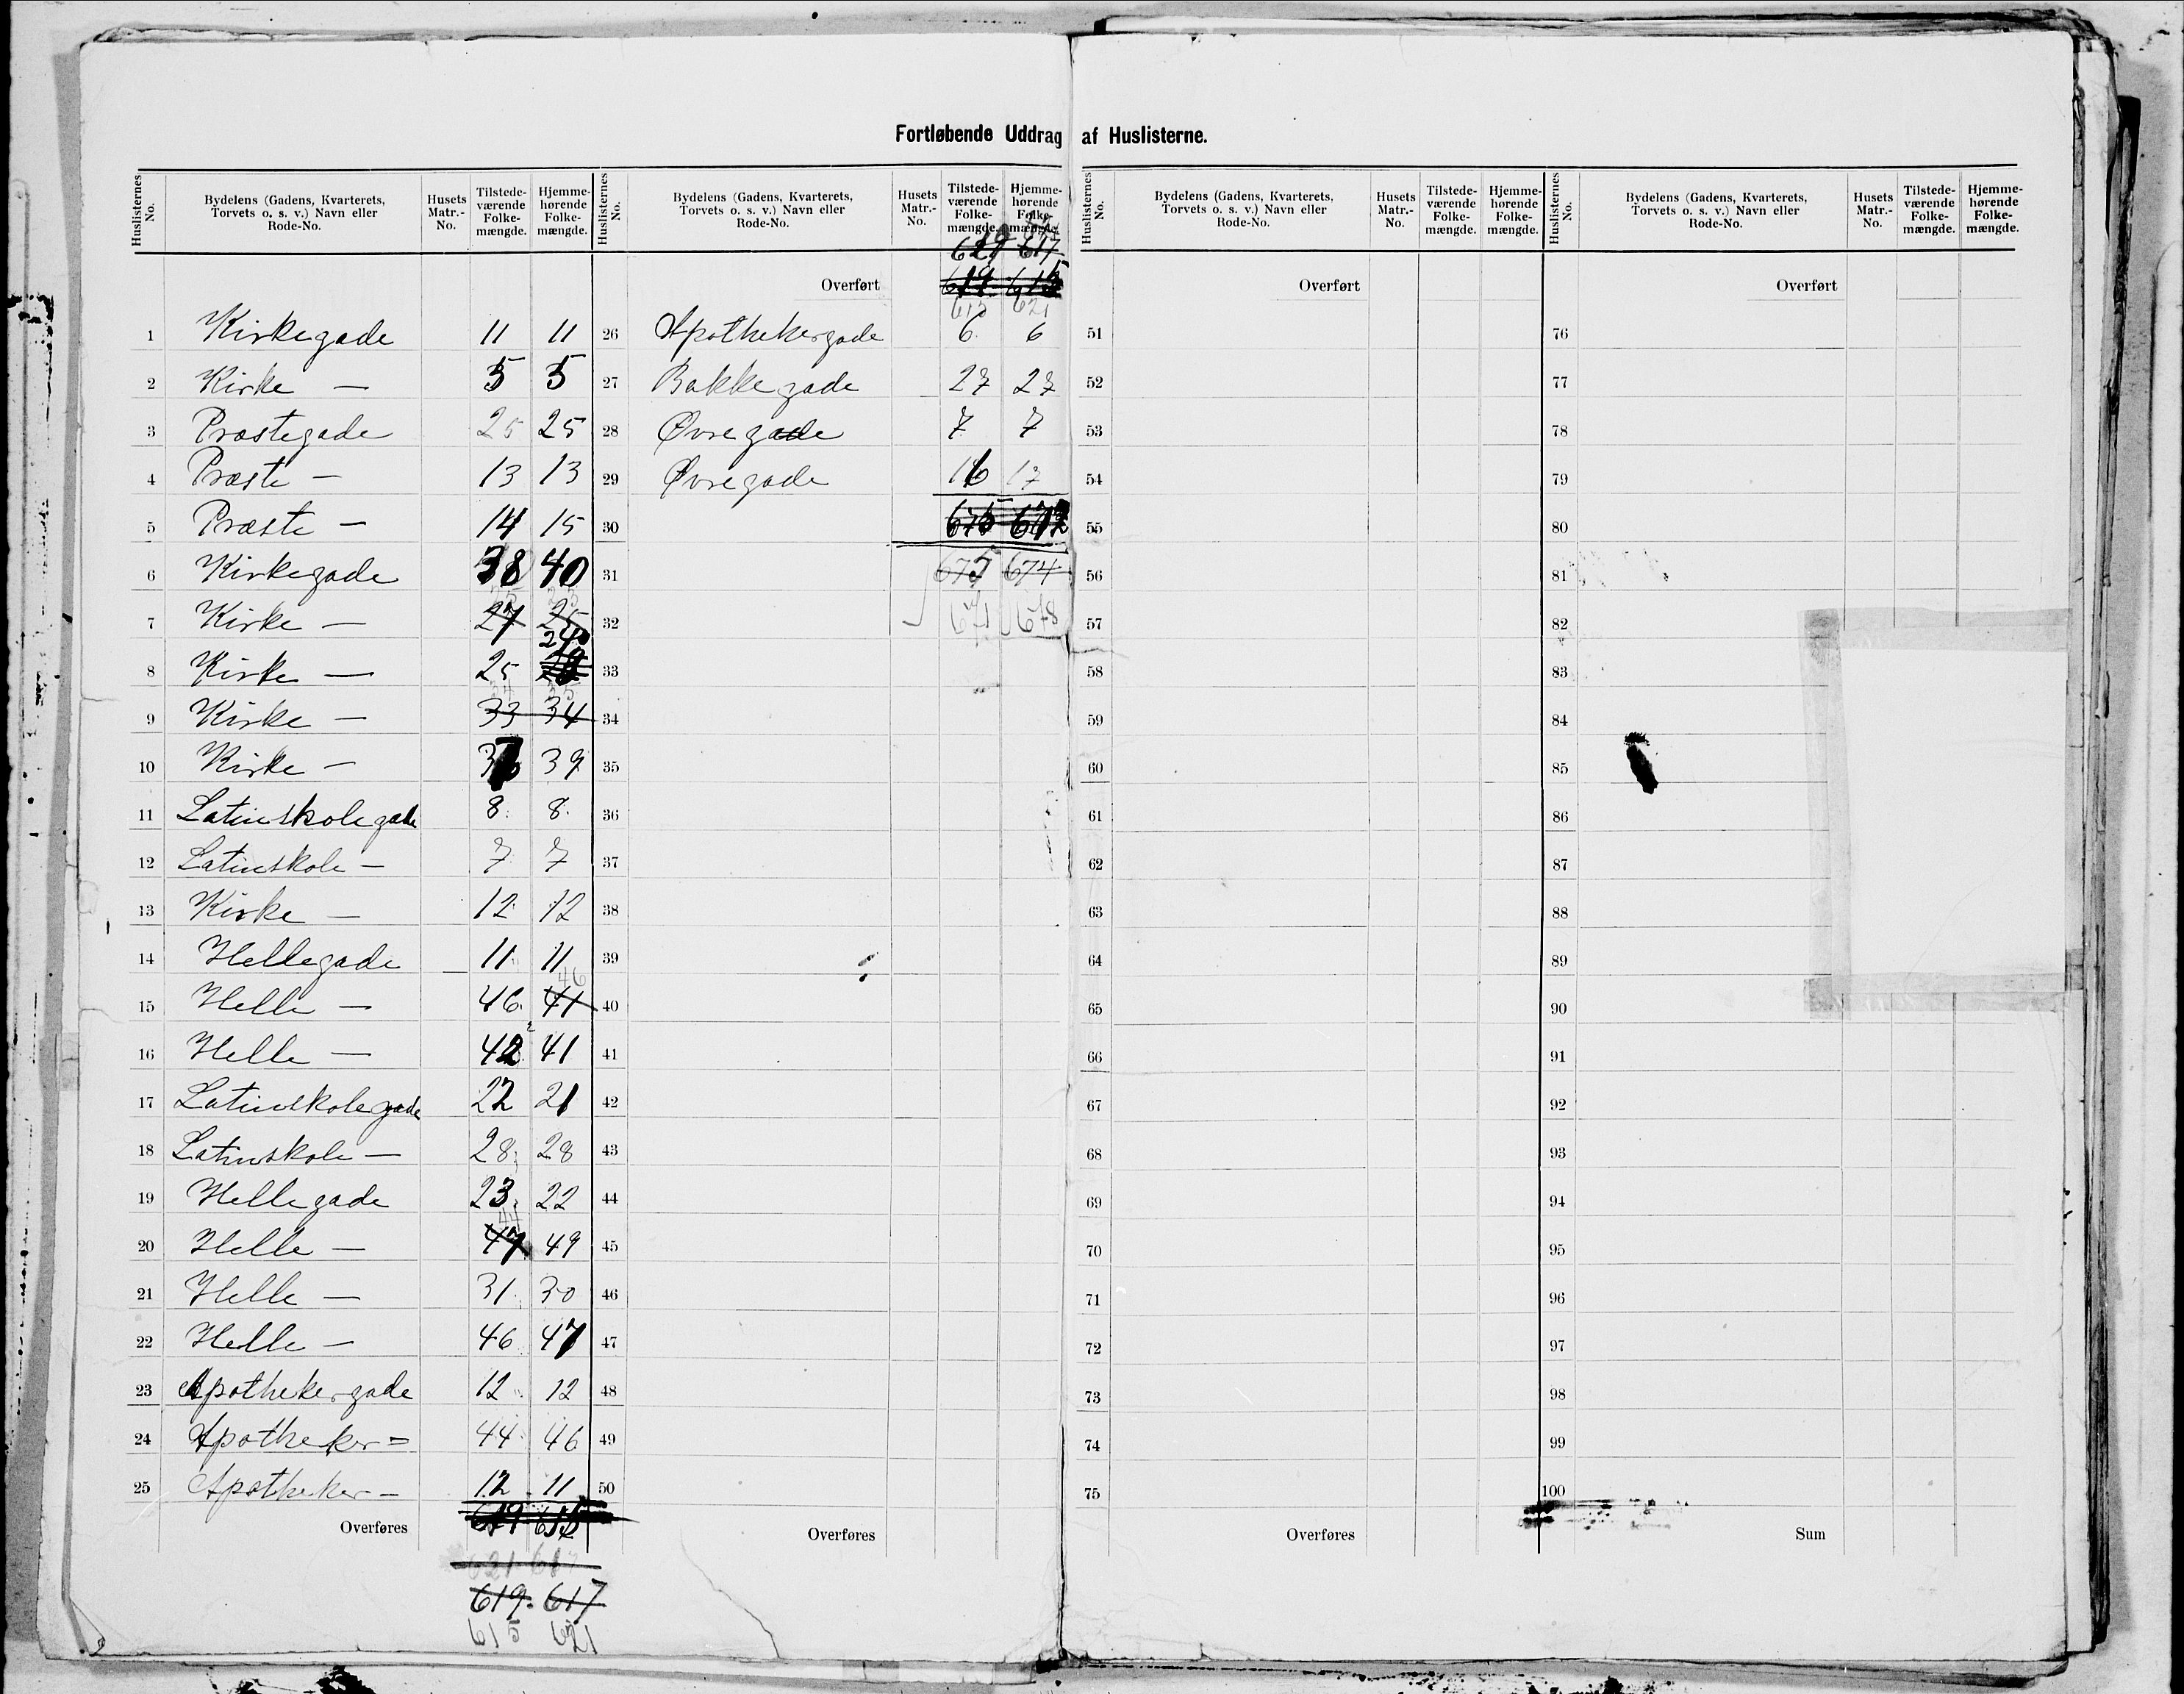 Fortløbende Uddrag af Huslisterne.
Huslisternes No. Bydelens (Gadens, Kvarterets, Torvets o. s. v.) Navn eller Rode-No. Husets Matr.-No. Tilstedeværende Folkemængde. Hjemmehørende Folkemængde.
1 Kirkegade 11 11
2 Kirke — 5 5
3 Præstegade 25 25
4 Præste — 13 13
5 Præste — 14 15
6 Kirkegade 38 40
7 Kirke — 27 25
8 Kirke — 25 24
9 Kirke — 33 34
10 Kirke — 37 39
11 Latinskolegade 8 8
12 Latinskole — 7 7
13 Kirke — 12 12
14 Hellegade 11 11
15 Helle — 46 41 46
16 Helle — 42 41
17 Latinskolegade 22 21
18 Latinskole — 28 28
19 Hellegade 23 22
20 Helle — 47 44 49
21 Helle — 31 30
22 Helle — 46 47
23 Apothekergade 12 12
24 Apotheker = 44 46
25 Apotheker — 12 11
Overføres
619 617
615 621
Huslisternes No. Bydelens (Gadens, Kvarterets, Torvets o. s. v.) Navn eller Rode-No. Husets Matr.-No. Tilstedeværende Folkemængde. Hjemmehørende Folkemængde.
617
Overført
615 621
26 Apothekergade 6 6
27 Bakkegade 27 27
28 Øvregade 7 7
29 Øvregade 16 17
30
31 675 674
32 671 678
33
34
35
36
37
38
39
40
41
42
43
44
45
46
47
48
49
50
Overføres
Huslisternes No. Bydelens (Gadens, Kvarterets, Torvets o. s. v.) Navn eller Rode-No. Husets Matr.-No. Tilstedeværende Folkemængde. Hjemmehørende Folkemængde.
Overført
51
52
53
54
55
56
57
58
59
60
61
62
63
64
65
66
67
68
69
70
71
72
73
74
75
Overføres
Huslisternes No. Bydelens (Gadens, Kvarterets, Torvets o. s. v.) Navn eller Rode-No. Husets Matr.-No. Tilstedeværende Folkemængde. Hjemmehørende Folkemængde.
Overført
76
77
78
79
80
81
82
83
84
85
86
87
88
89
90
91
92
93
94
95
96
97
98
99
100
Sum